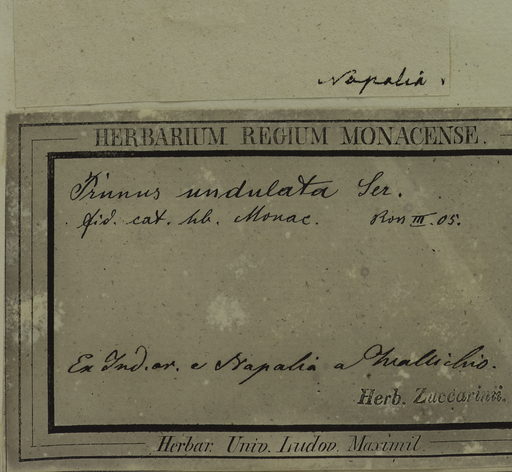 Napalia.
HERBARIUM REGIUM MONACENSE.
Prunus undulata Ser.
fid. cat. hb. Monac. III.05.
Ex Ind. or. e Napalia a Wallichio.
Herb. Zuccarinii.
Herbar. Univ. Ludov. Maximil.